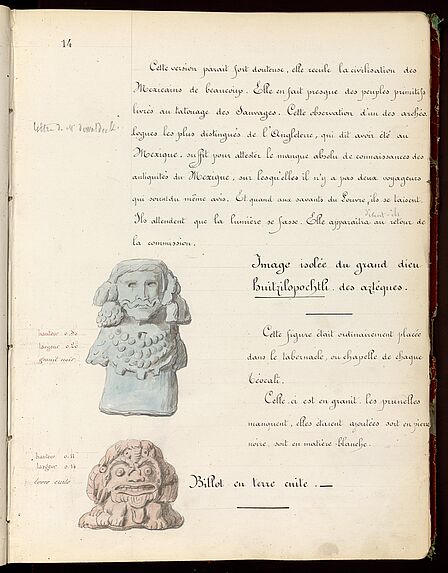 14
Cette version parait fort douteuse, elle recule la civilisation des
Mexicains de beaucoup. Elle en fait presque des peuples primitifs
livrés au tatouage des Sauvages. Cette observation d'un des archéo
lettre de Mr
logues les plus distingués de l'Angleterre, qui dit avoir été au
Mexique, suffit pour attester le manque absolu de connaissances des
antiquités du Mexique, sur lesquelles il n'y a pas deux voyageurs
qui soient du même avis. Et quand aux savants du Louvre, ils se taisent.
Ils attendent que la lumière se fasse. Elle apparaîtra au retour de
la commission.
Image isolée du grand dieu
huitzilopochtli des aztèques.
hauteur 0.30
largeur 0.20
granit noir
Cette figure était ordinairement placée
dans le tabernacle, ou chapelle de chaque
Téocali.
Celle-ci est en granit. les prunelles
manquent, elles étaient ajoutées soit en pierre
noire, soit en matière blanche.
hauteur 0.11
largeur 0.14
terre cuite
Billot en terre cuite. —